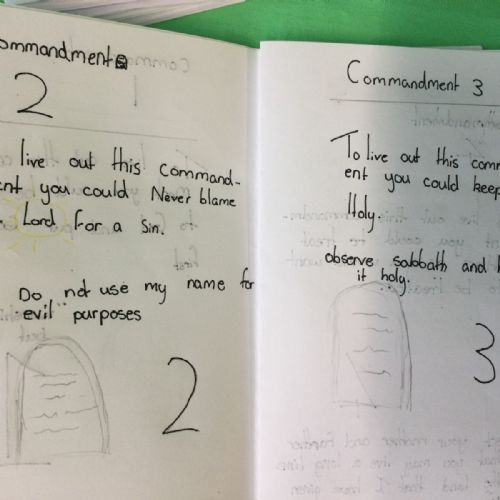 ommandment
2
live out this command-
ent you could Never blame
Lord for a sin.
Do not use my name for
evil purposes
2
Commandment 3
To live out this comm
ent you could keep
Holy.
observe sabbath and
it holy.
3